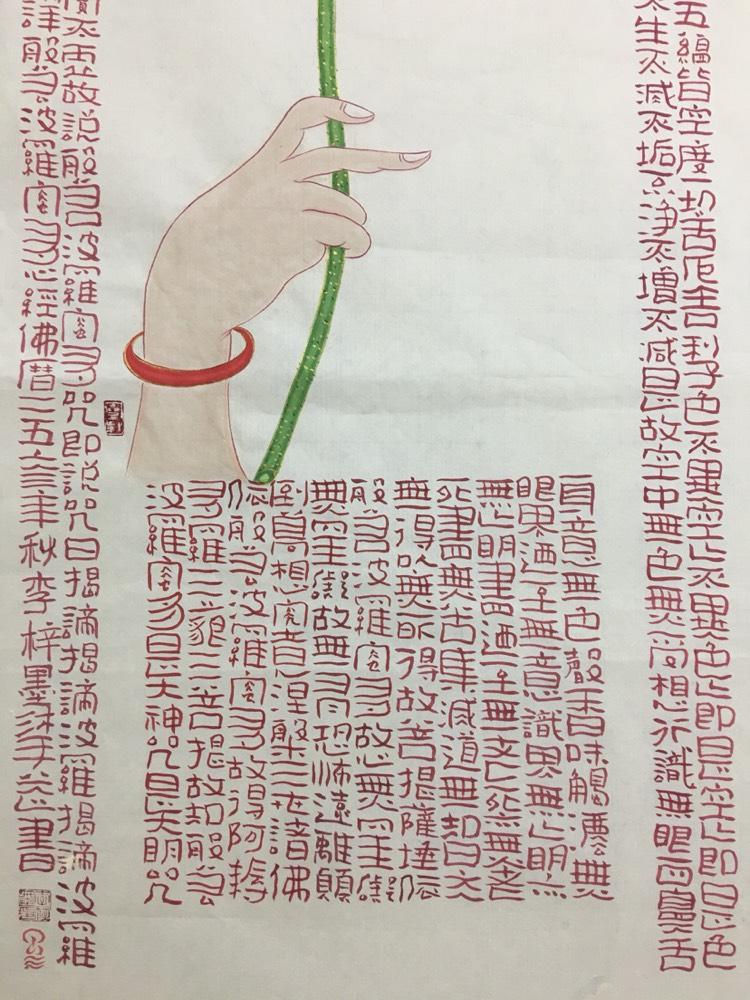 五縕皆空度一切苦厄舍利子色不異空〻不異色〻即是空〻即是色
不生不滅不垢不淨不增不減是故空中無色無受想行識無眼耳鼻舌
身意無色聲香味觸法無
眼界迺至無意識界無〻明亦
無〻明盡迺至無老死亦無老
死盡無苦集滅道無智亦
無得以無所得故菩提薩埵依
般若波羅蜜多故心無罣礙
無罣礙故無有恐怖遠離顛
倒夢想究竟涅槃三世諸佛
依般若波羅蜜多故得阿耨
多羅三藐三菩提故知般若
波羅蜜多是大神咒是大明咒
實不虛故說般若波羅蜜多咒即說咒曰揭諦揭諦波羅揭諦波羅
般若波羅蜜多心經佛曆二五六三年秋李梓墨沐手敬書